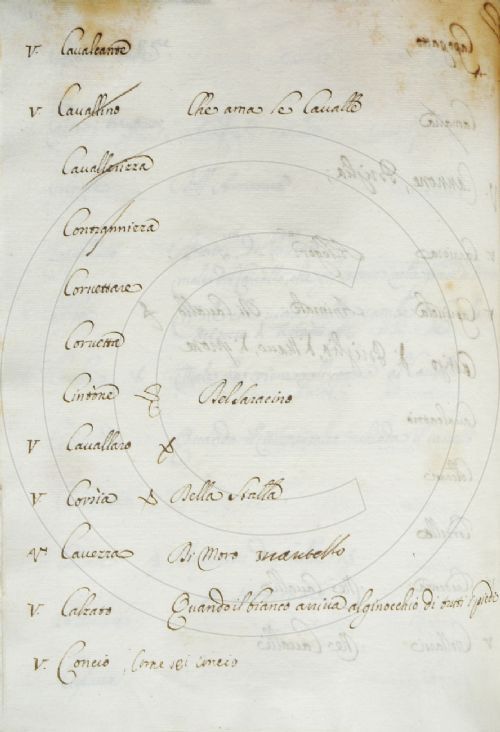 V. Cavalcante
V Cavallino Che ama le Cavalle
Cavallerizza
Corvettare
Corvetta
Cintone Del Saracino
V Cavallaro
V Corsia Della Stalla
V Cavezza Di Moro mantello
V. Calzato Quando il bianco arriva al ginocchio di tutti i piedi
V. Concio, Come sei concio